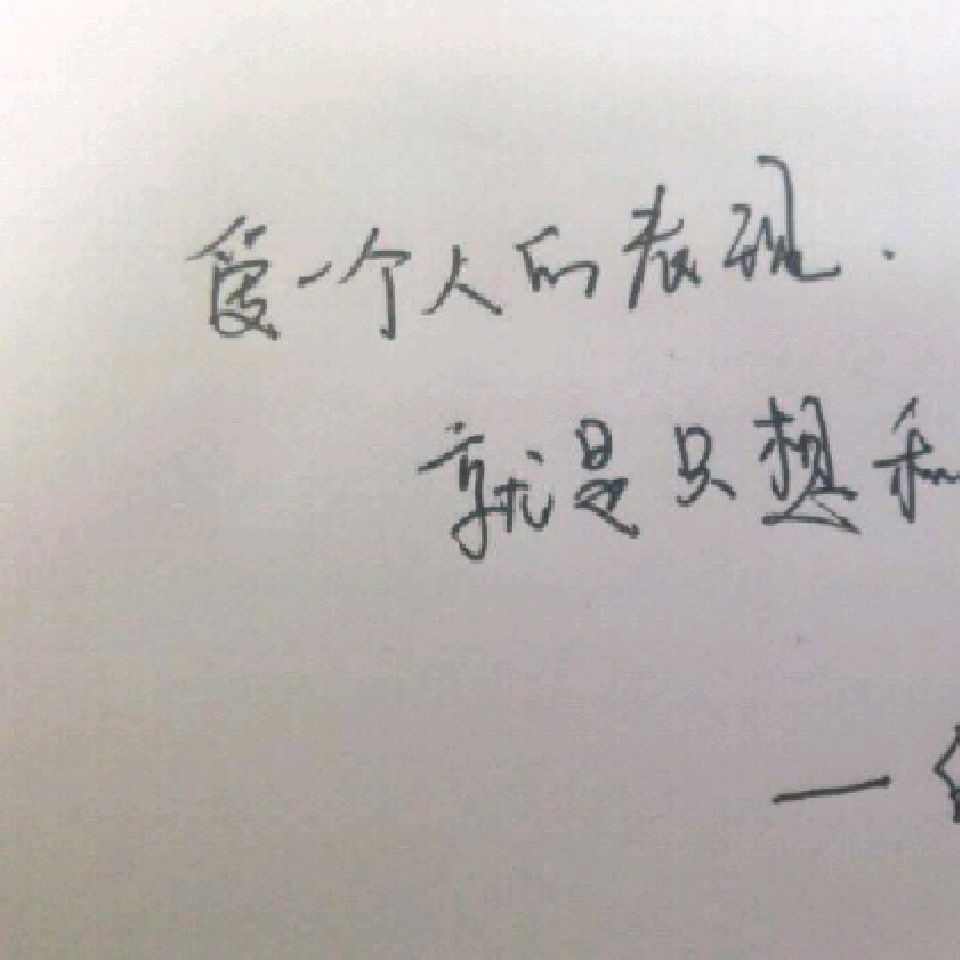 爱一个人的表现.
就是只想和
—《